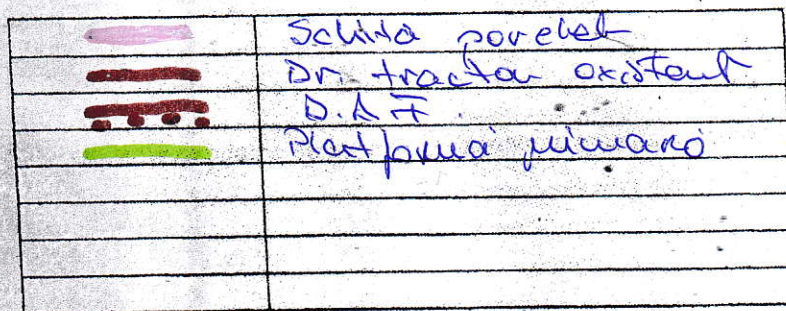 Schița parchet
Dr. tractor existent
D.A.F.
Platformă primară